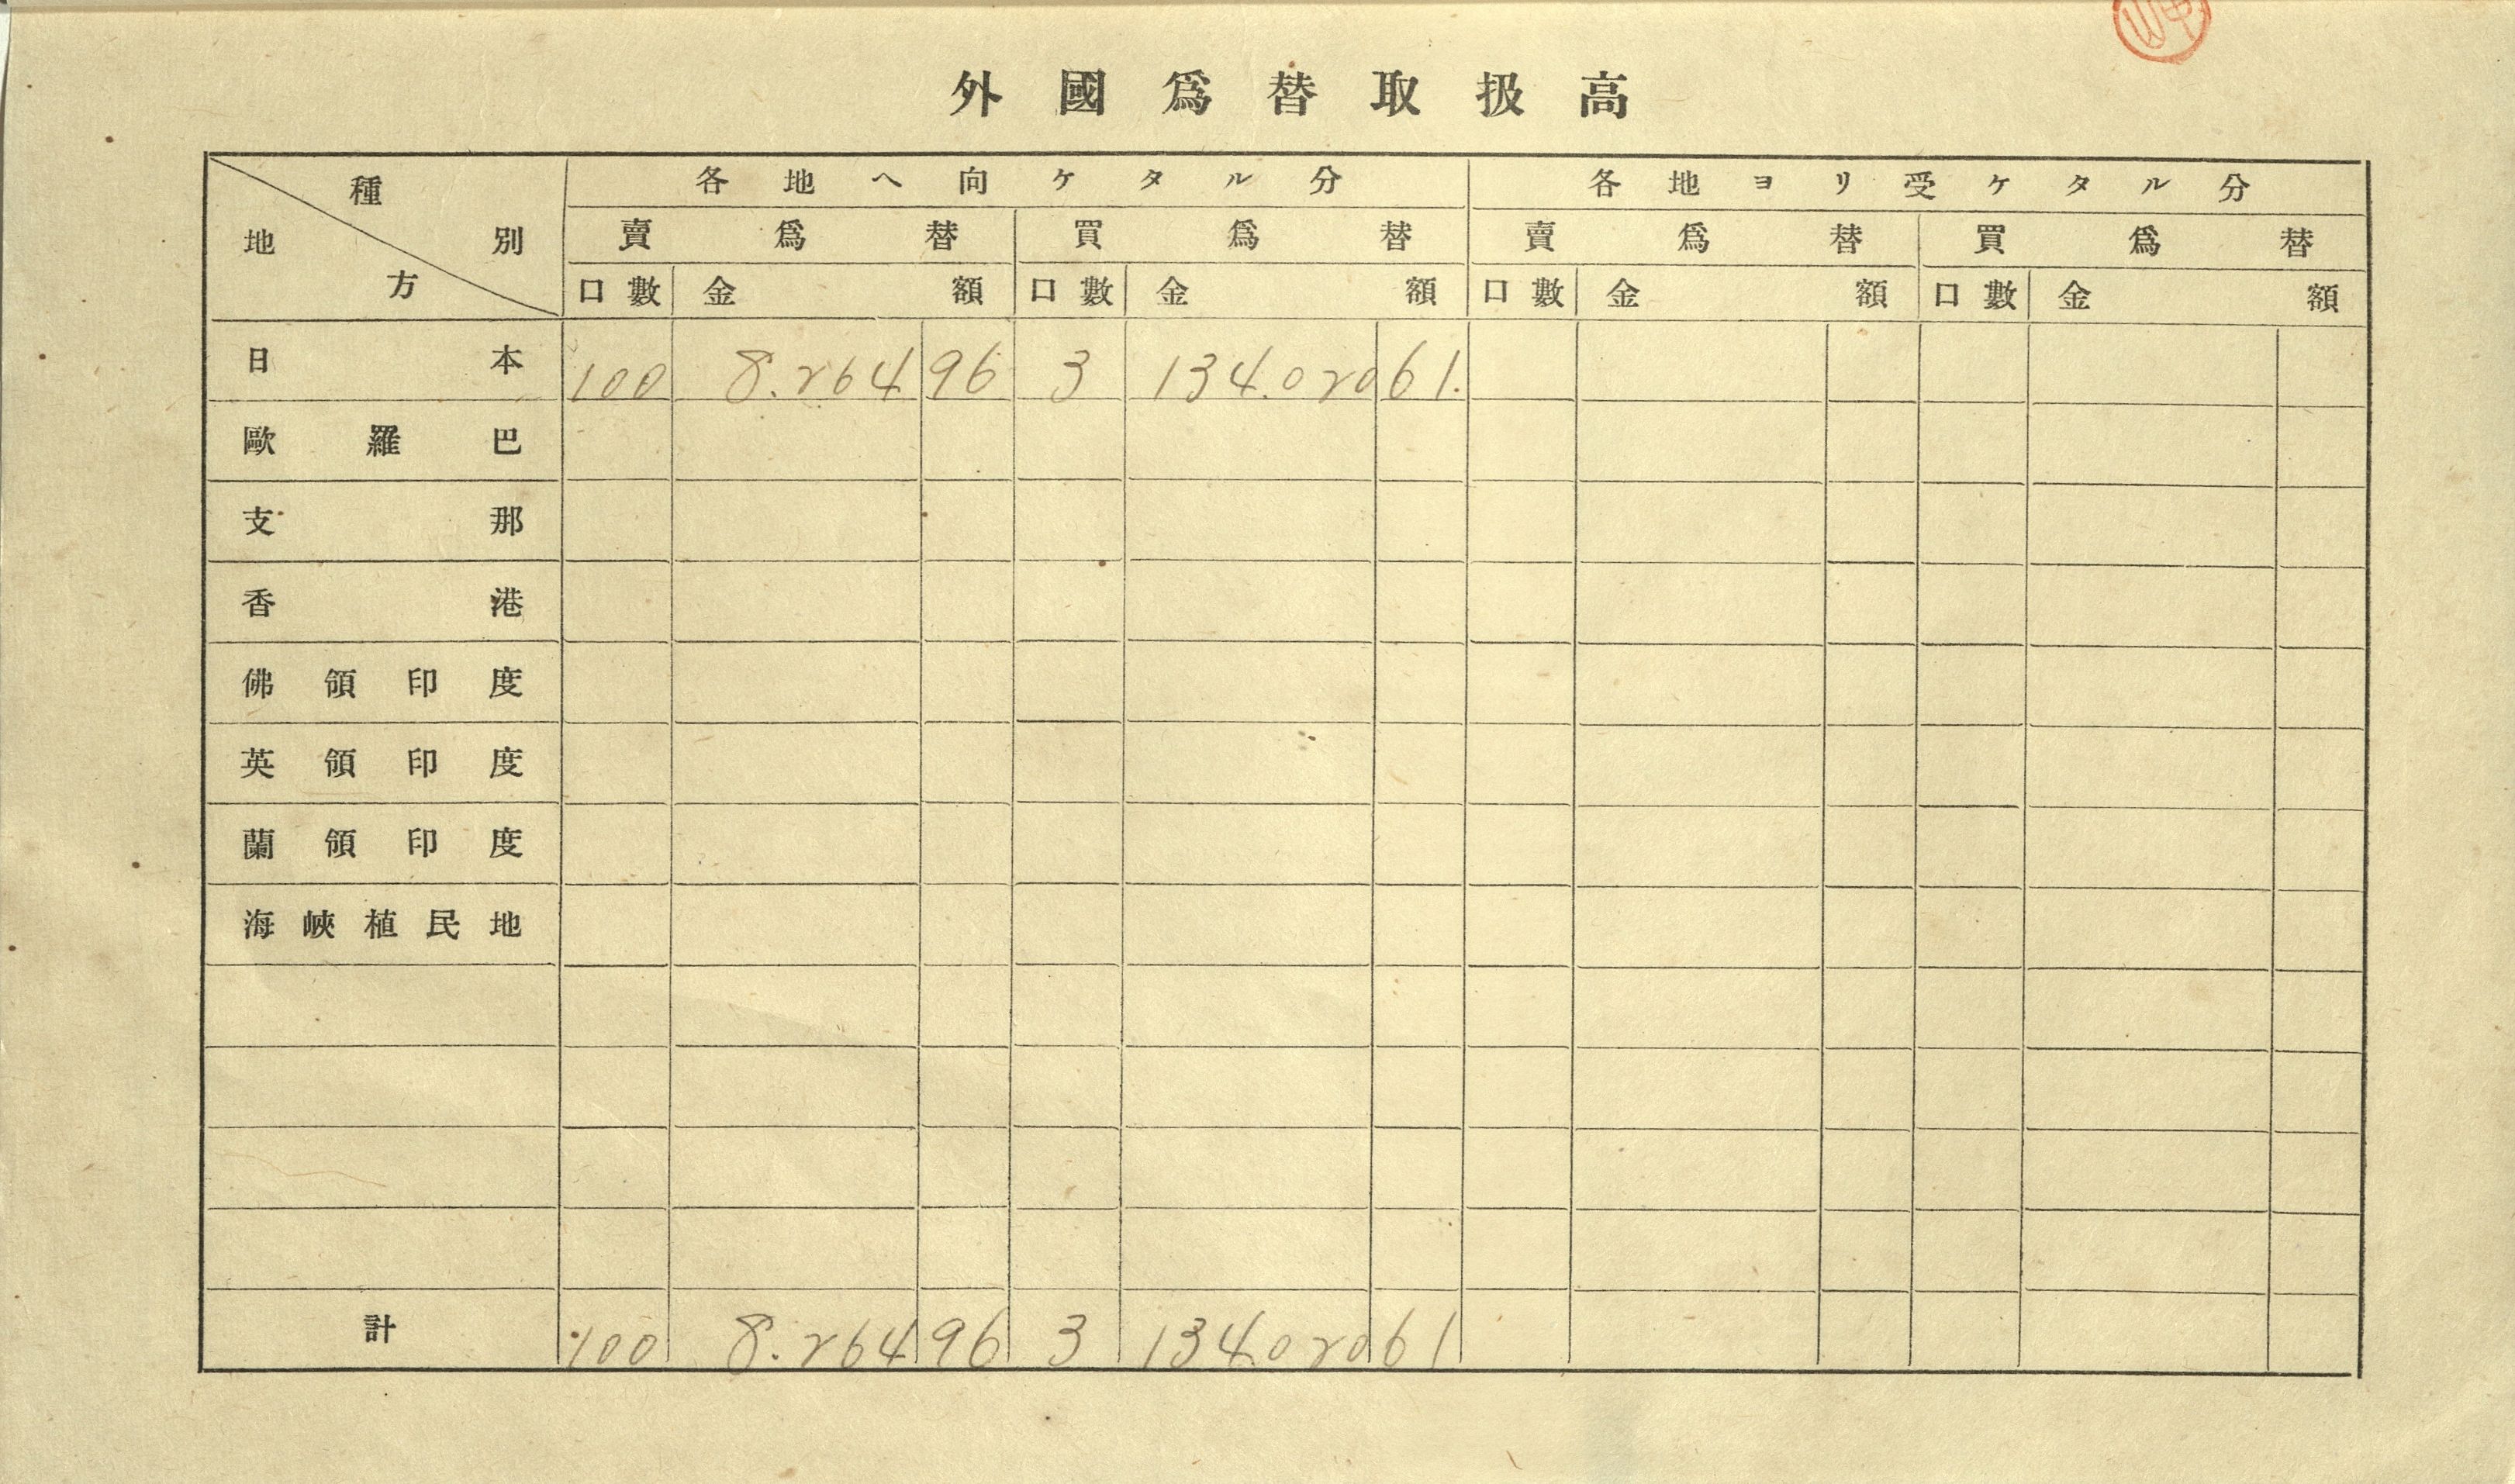 外國爲替取扱高
種別 地方 各地ヘ向ケタル分 各地ヨリ受ケタル分
賣爲替 買爲替 賣爲替 買爲替
口數 金額 口數 金額 口數 金額 口數 金額
日本 100 8.264 96 3 134.020 61.
歐羅巴
支那
香港
佛領印度
英領印度
蘭領印度
海峽植民地
計 100 8.264 96 3 134.020 61